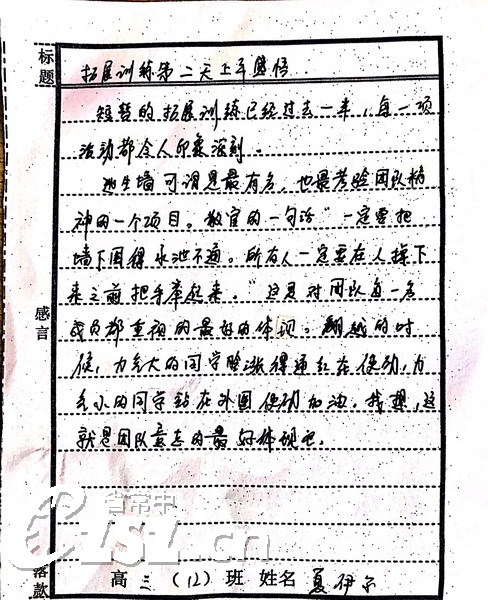 标题
拓展训练第二天上午感悟
短暂的拓展训练已经过去一半，每一项
活动都令人印象深刻。
逃生墙可谓是最有名，也最考验团队精
神的一个项目。教官的一句话"一定要把
墙下围得水泄不通。所有人一定要在人掉下
来之前把手举起来。"这是对团队每一名
成员都重视的最好的体现。翻越的时
候，力气大的同学脸涨得通红在使劲，力
气小的同学站在外围使劲加油。我想，这
就是团队意志的最好体现吧。
感言
省常中
落款
高三（12）班 姓名 夏伊